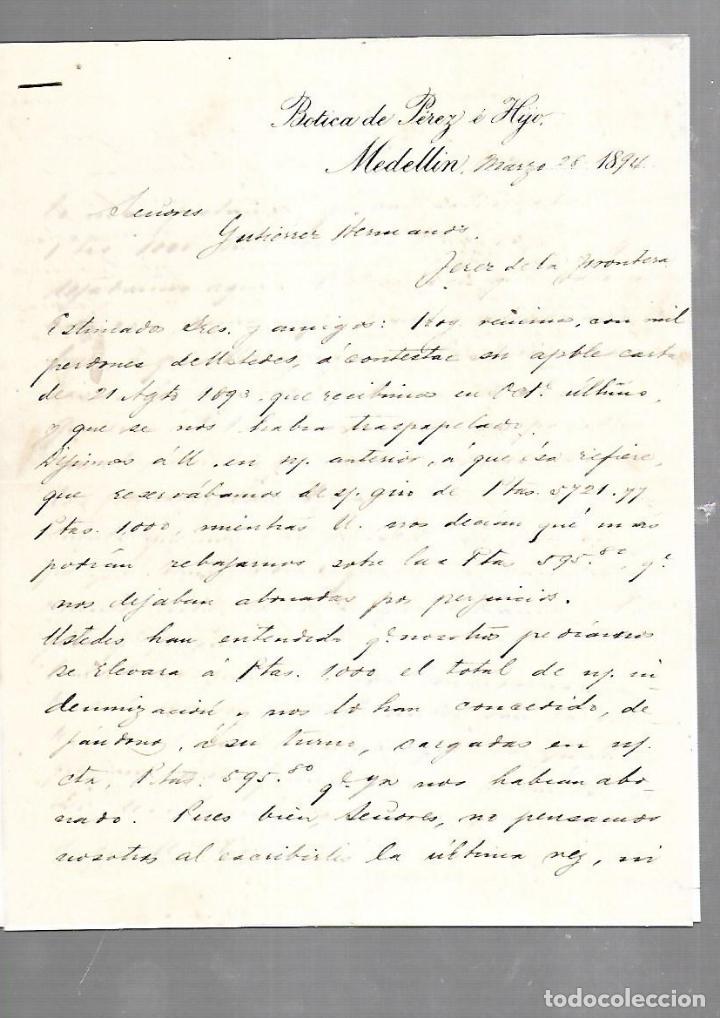 Botica de Pérez é Hijo.
Medellín, Marzo 26 1894
Señores
Gutiérrez Hermanos.
Jerez de la Frontera
Estimados Sres. y amigos: Hoy venimos, con mil
perdones de Ustedes, á contestar su apble carta
de 21 Agto 1893. que recibimos en Oct. último,
y que se nos había traspapelado.
Dijimos á U. en n/. anterior, á que ésa refiere,
que reservábamos de s/. giro de Ptas. 5721.77
Ptas. 1,000, mientras U. nos decían qué más
podían rebajarnos sobre las Ptas 595.80, qe.
nos dejaban abonadas por perjuicios.
Ustedes han entendido qe. nosotros pedíamos
se elevara á Ptas. 1,000 el total de n/. in
demnización y nos lo han concedido, de
jándonos, á su turno, cargadas en n/.
cta, Ptas. 595.80 qe. ya nos habían abo-
nado. Pues bien, Señores, no pensamos
nosotros al escribirles la última vez, ni
todocoleccion
todocoleccion.net